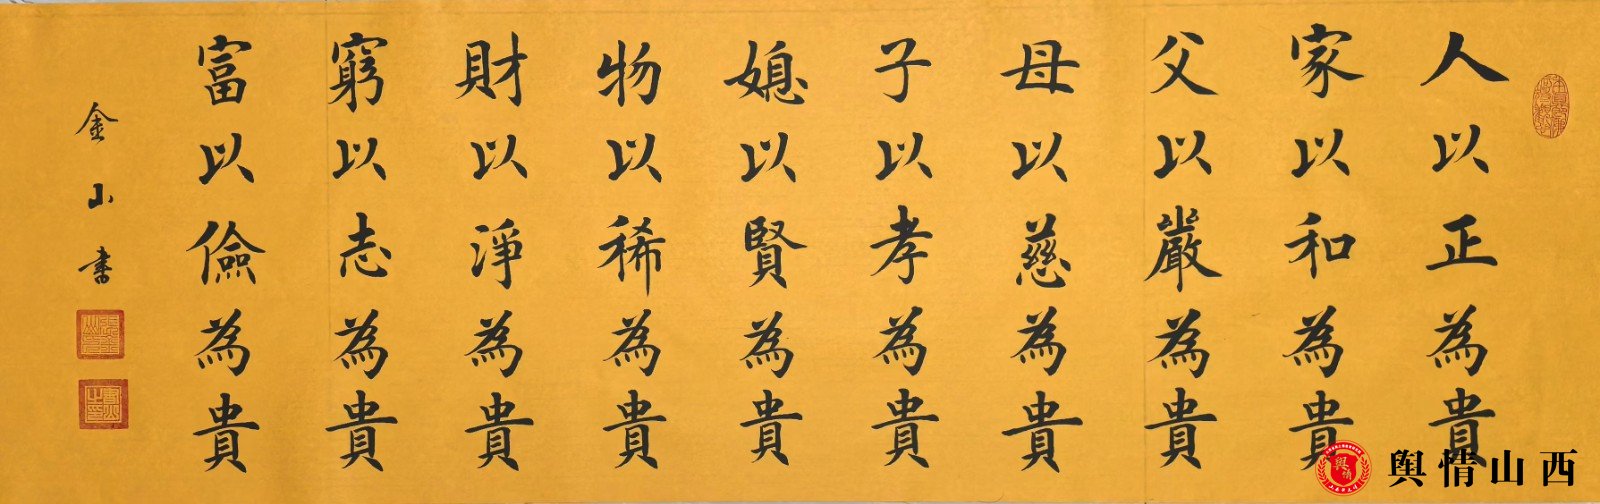 人以正為貴
家以和為貴
父以嚴為貴
母以慈為貴
子以孝為貴
媳以賢為貴
物以稀為貴
財以淨為貴
窮以志為貴
富以儉為貴
金山書
舆情
舆情山西